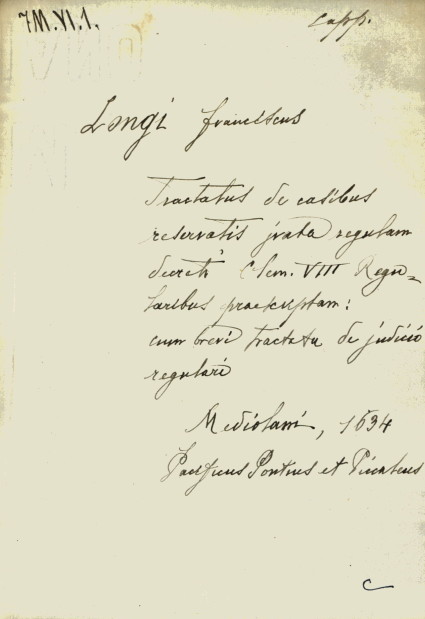 7M.VI.1.
Capp.
Longi Franciscus
Tractatus de casibus
reservatis juxta regulam
decreti Clem. VIII Regu-
laribus praescriptam:
cum brevi tractatu de judicio
regulari
Mediolani, 1634
Pacificus Pontius et Picateus
C